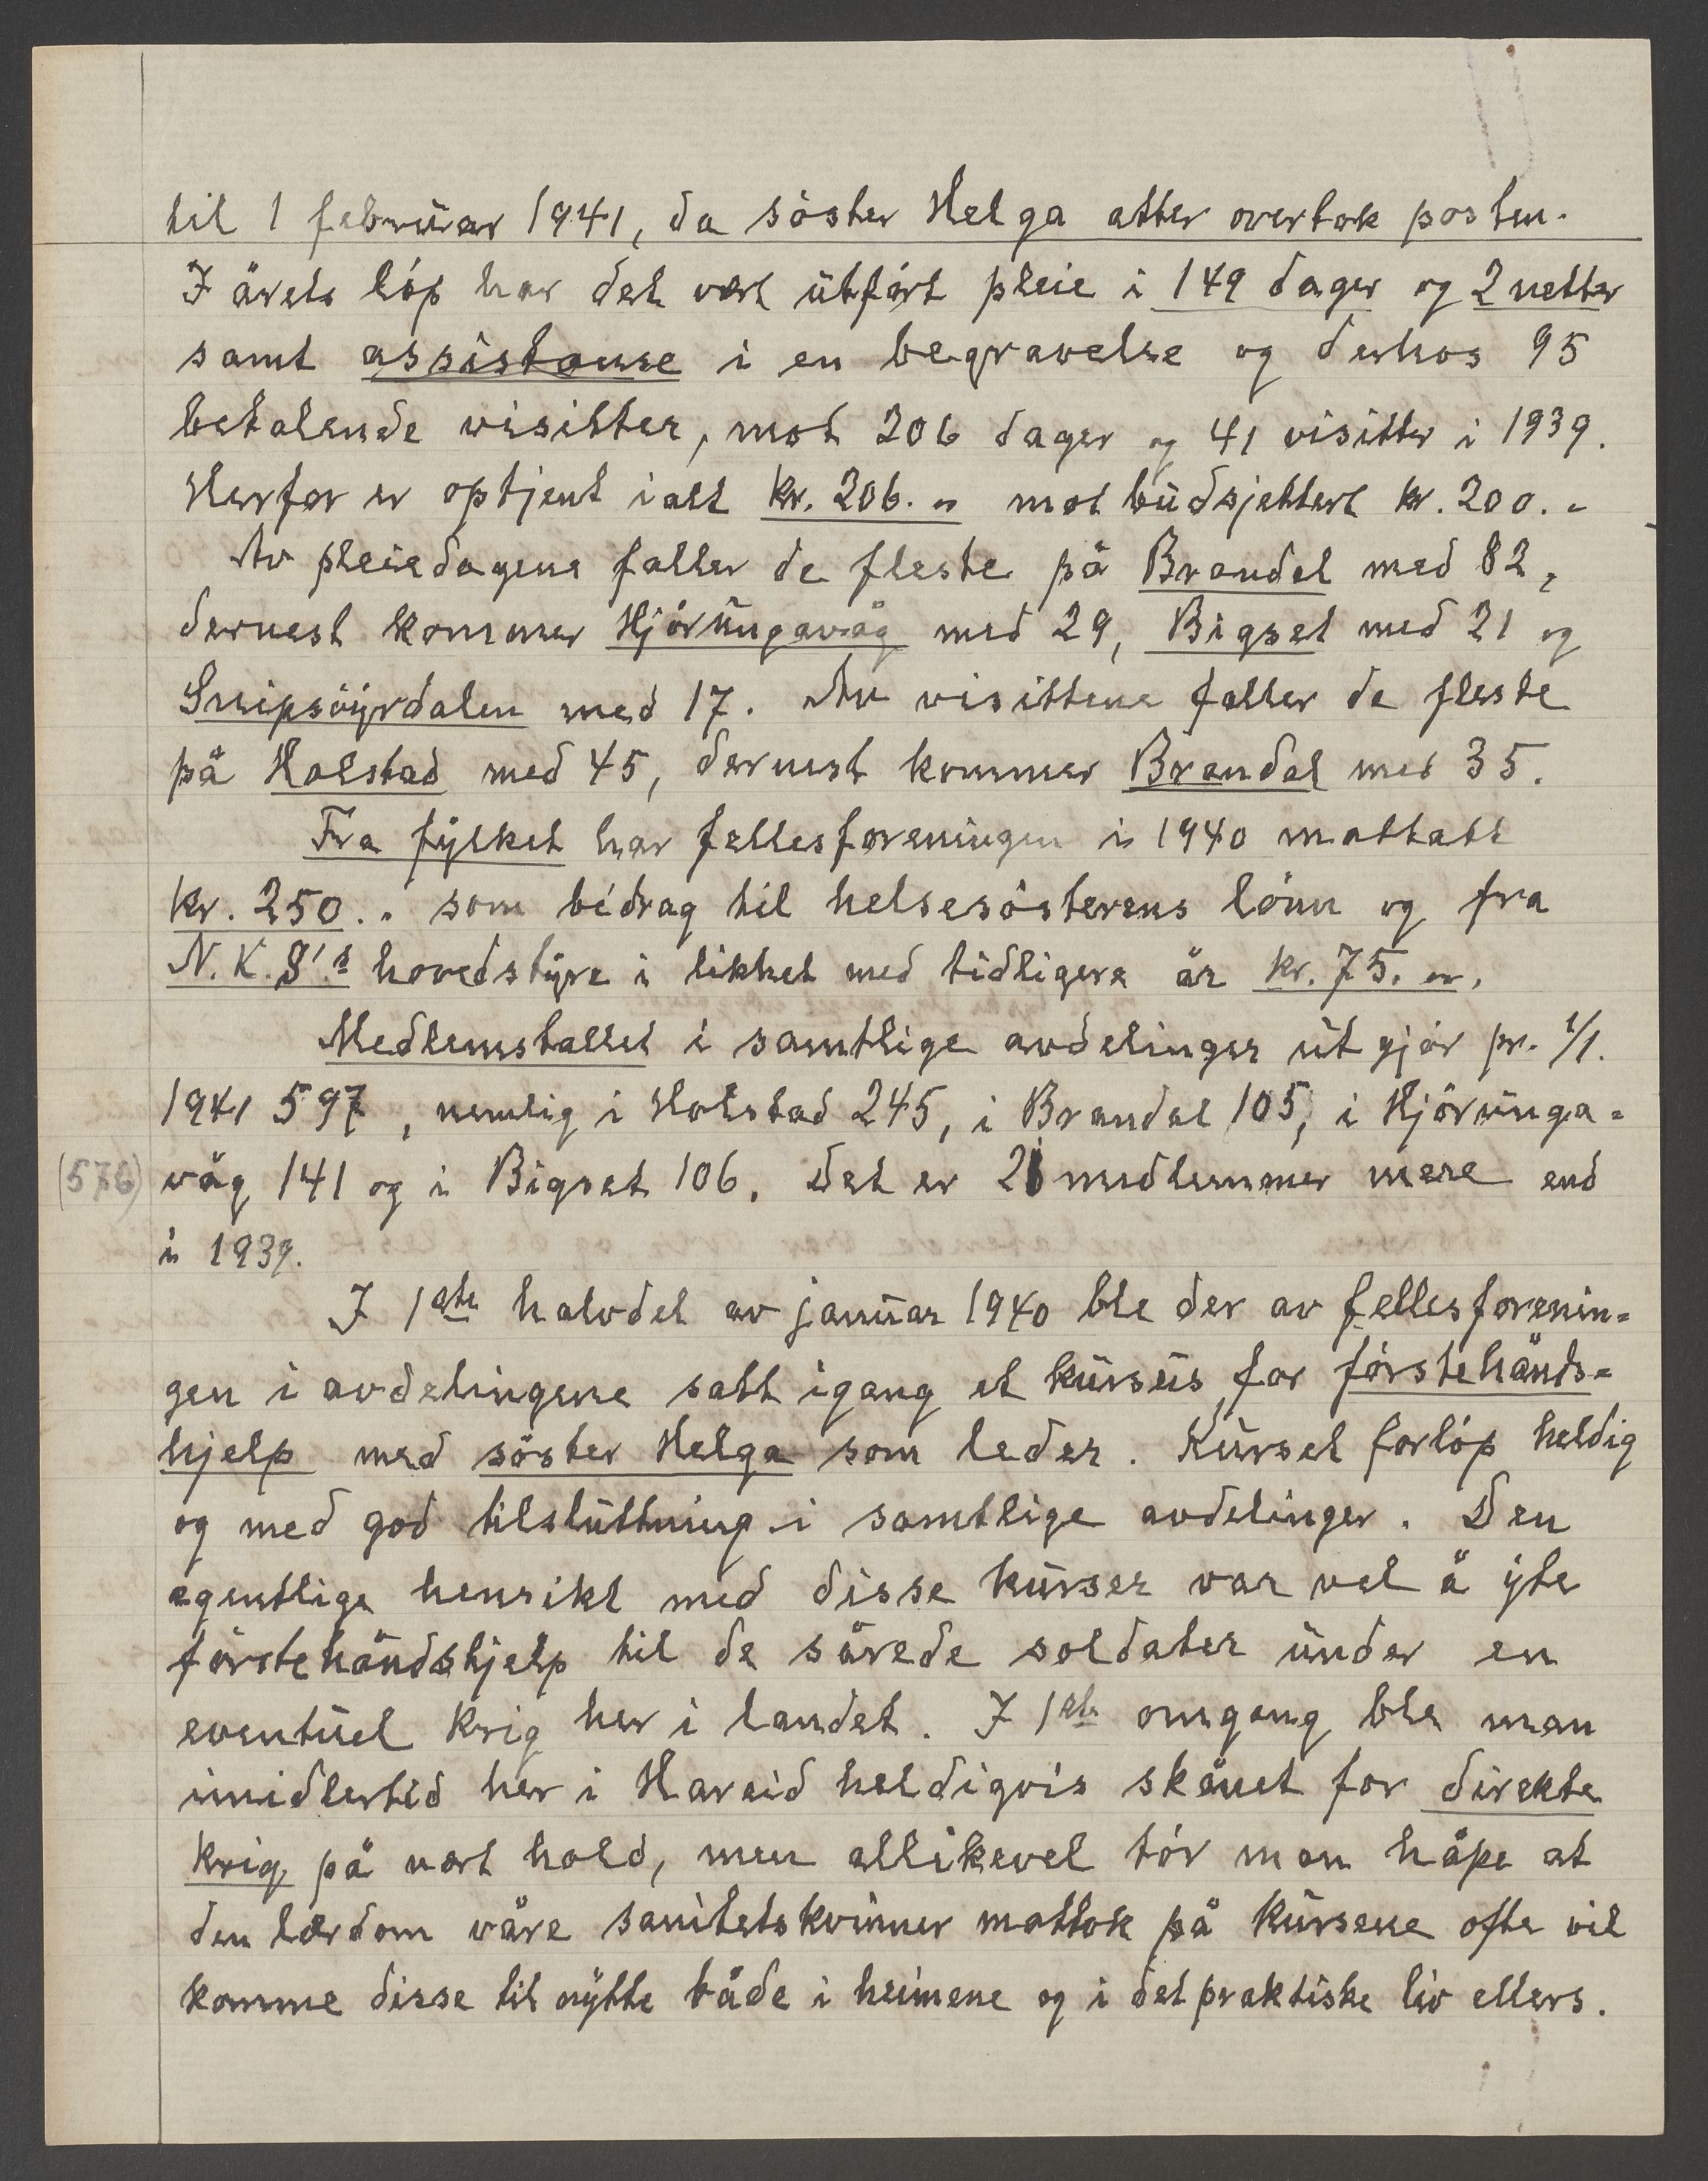 til 1 februar 1941, da söster Helga atter overtok posten.
I årets löp har det vært utfört pleie i 149 dager og 2 netter
samt assistanse i en begravelse og derhos 95
betalende visitter, mot 206 dager og 41 visitter i 1939.
Herfor er optjent ialt kr. 206.- mot budsjettert kr. 200.-
Av pleiedagene faller de fleste på Brandal med 82,
dernest kommer Hjörungavåg med 29, Bigset med 21 og
Snipsöyrdalen med 17. Av visittene faller de fleste
på Holstad med 45, dernest kommer Brandal med 35.
Fra fylket har fellesforeningen i 1940 mottatt
kr. 250.- som bidrag til helsesösterens lönn og fra
N.K.S's hovedstyre i likhet med tidligere år kr. 75.-.
Medlemstallet i samtlige avdelinger utgjör pr. 1/1.
1941 597, nemlig i Holstad 245, i Brandal 105, i Hjörunga=
(576) våg 141 og i Bigset 106. Det er 21 medlemmer mere end
i 1939.
I 1ste halvdel av januar 1940 ble der av fellesforenin=
gen i avdelingene satt igang et kursus for förstehånds=
hjelp med söster Helga som leder. Kurset forlöp heldig
og med god tilsluttning i samtlige avdelinger. Den
egentlige hensikt med disse kurser var vel å yte
förstehåndshjelp til de sårede soldater under en
eventuel krig her i landet. I 1ste omgang ble man
imidlertid her i Hareid heldigvis skånet for direkte
krig på vort hold, men allikevel tör man håpe at
den lærdom våre sanitetskvinner mottok på kursene ofte vil
komme disse til nytte både i heimene og i det praktiske liv ellers.